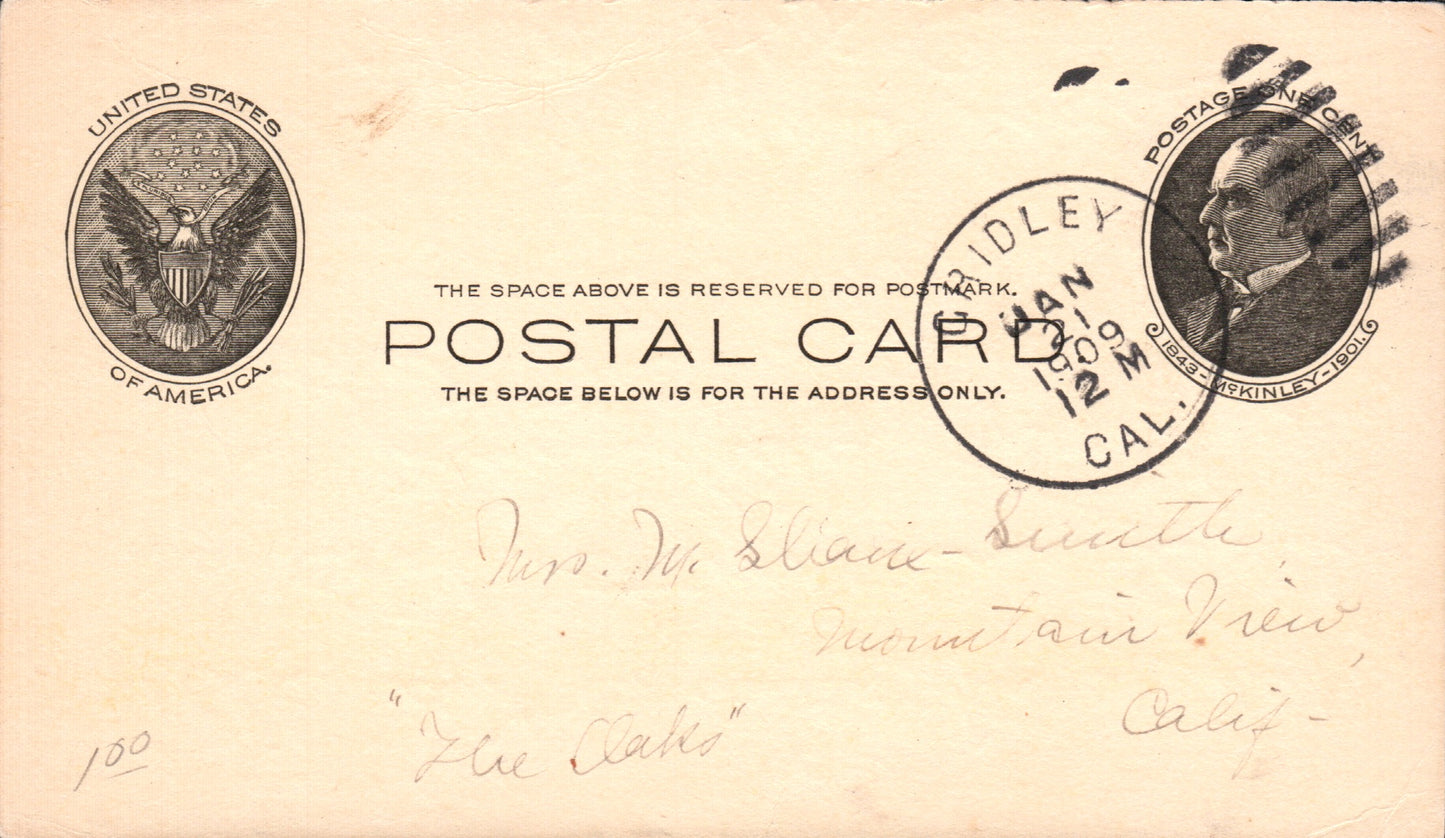 UNITED STATES
OF AMERICA.
POSTAGE ONE CENT
1843-McKINLEY-1901.
THE SPACE ABOVE IS RESERVED FOR POSTMARK.
POSTAL CARD.
THE SPACE BELOW IS FOR THE ADDRESS ONLY.
GRIDLEY
JAN
21
1909
12 M
CAL.
Mrs. M Sloane-Smith,
Mountain View,
Calif-
"The Oaks"
1 00